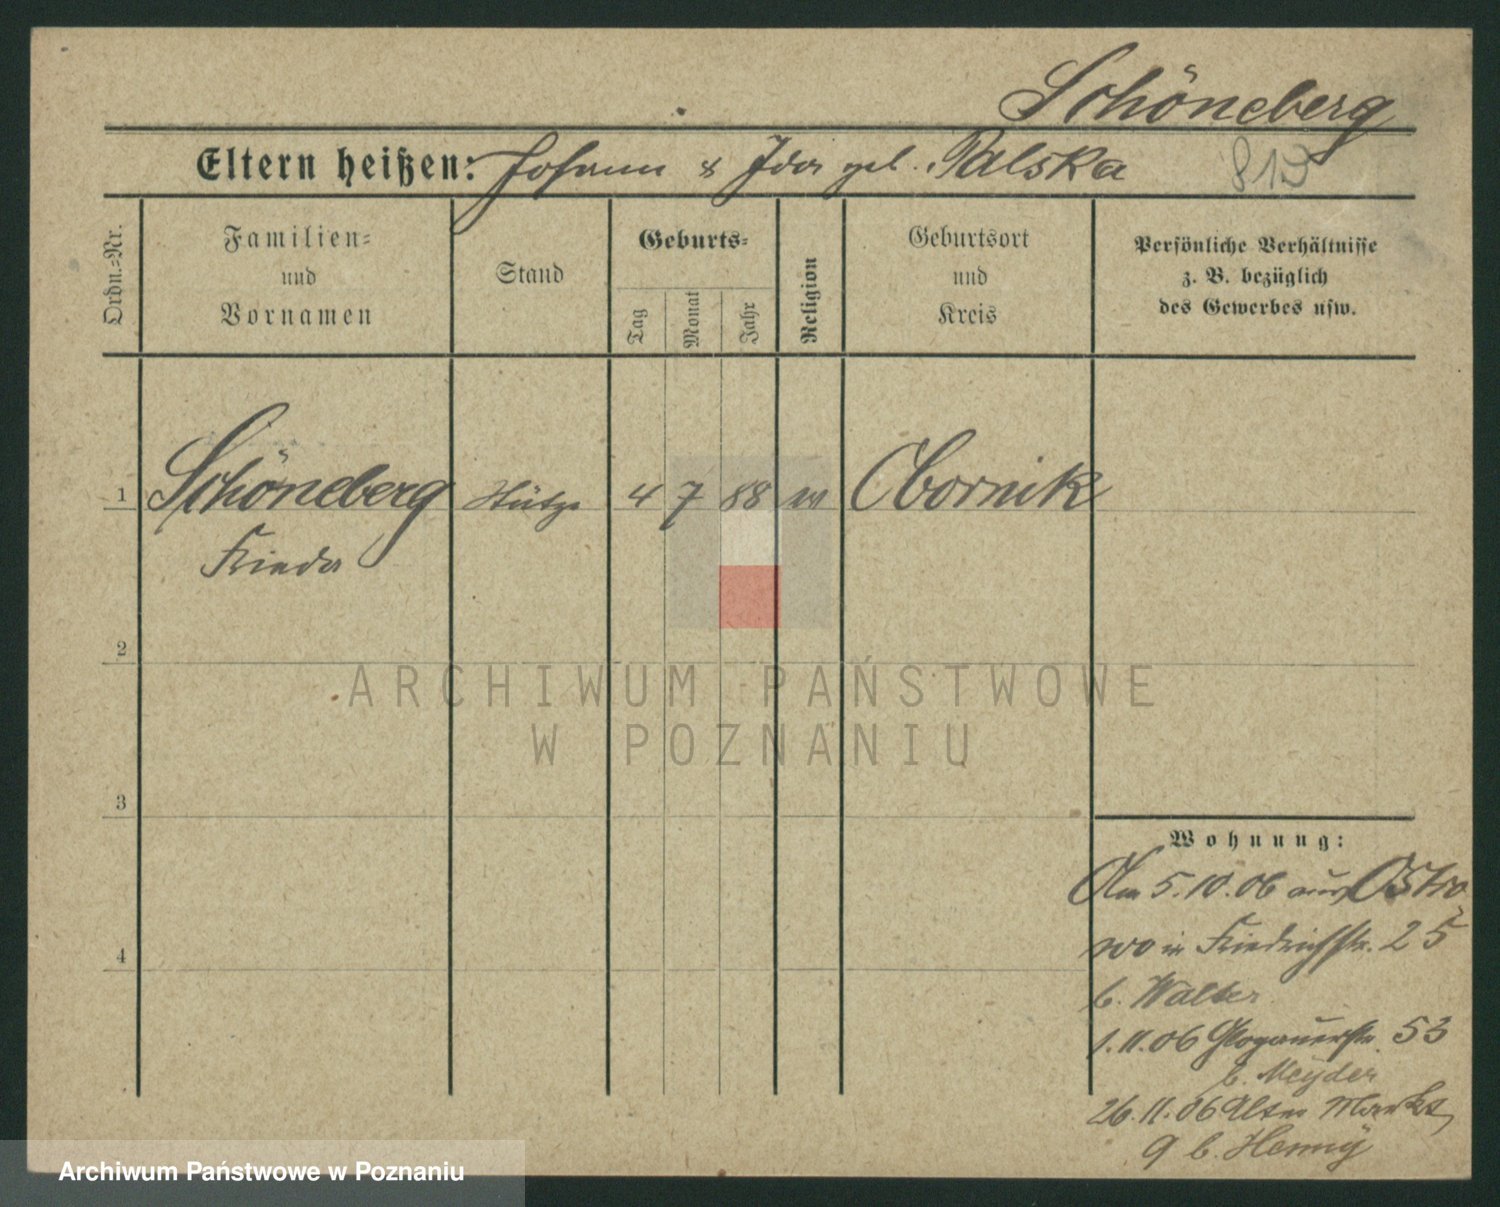 Schöneberg
Eltern heißen: Johann & Ida geb. Palska
813
Ordn.=Nr.
Familien=
und
Vornamen
Stand
Geburts=
Tag
Monat
Jahr
Religion
Geburtsort
und
Kreis
Persönliche Verhältnisse
z. B. bezüglich
des Gewerbes usw.
1 Schöneberg Stütze 4 7 88 Obornik
Frieda
2
3
4
Wohnung:
Am 5.10.06 aus Ostro
wo in Friedrichstr. 25
b. Walter
1.11.06 Glogauerstr. 53
b. Meyder
26.11.06 Alter Markt
9 b. Henny
ARCHIWUM PAŃSTWOWE
W POZNANIU
Archiwum Państwowe w Poznaniu